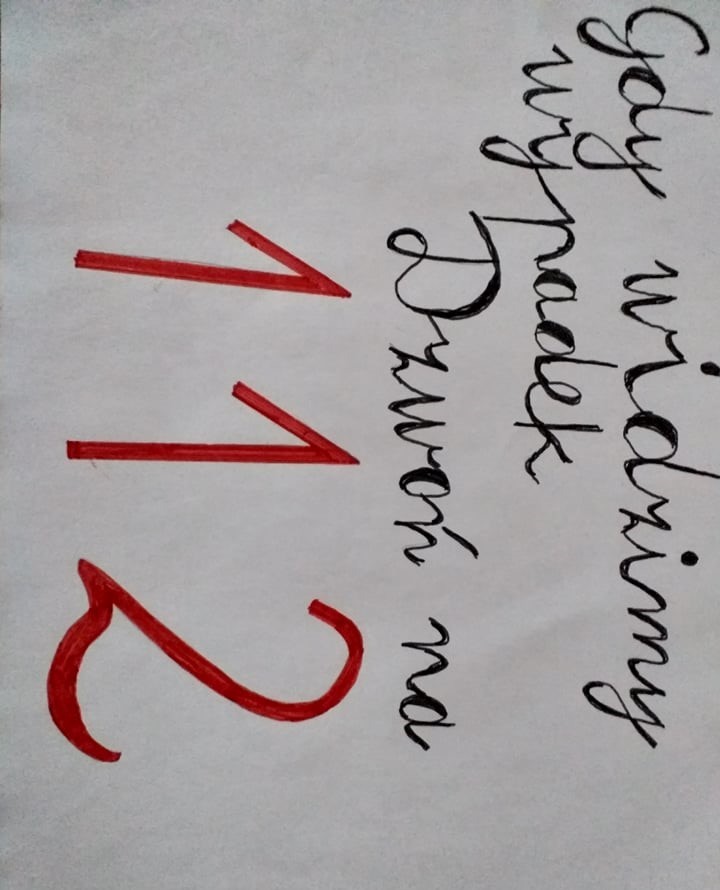 Gdy widzimy
wypadek
Dzwoń na
112